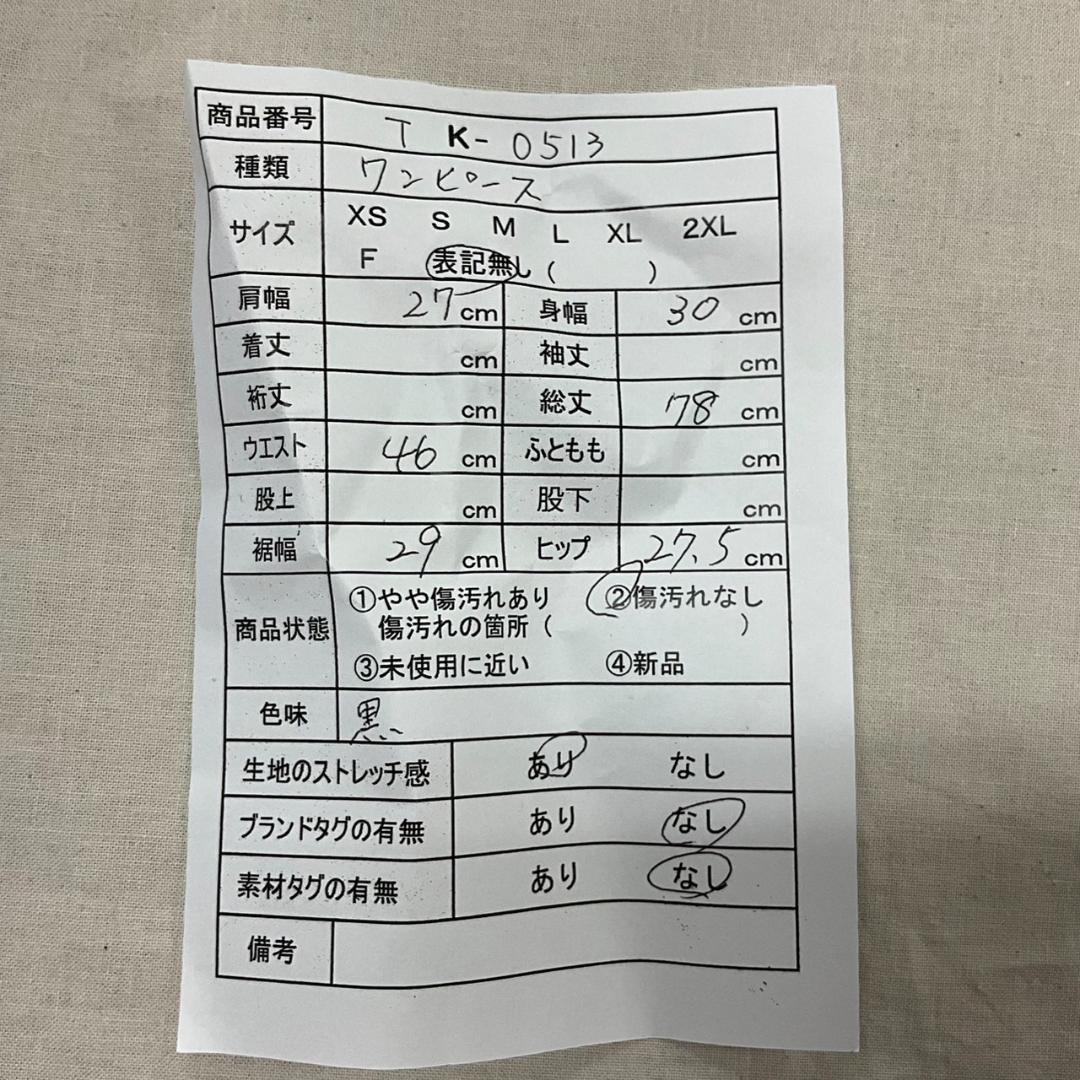 商品番号 T K- 0513
種類 ワンピース
サイズ XS S M L XL 2XL
F 表記無し ( )
肩幅 27 cm 身幅 30 cm
着丈 cm 袖丈 cm
裄丈 cm 総丈 78 cm
ウエスト 46 cm ふともも cm
股上 cm 股下 cm
裾幅 29 cm ヒップ 27.5 cm
商品状態 ①やや傷汚れあり ②傷汚れなし
傷汚れの箇所 ( )
③未使用に近い ④新品
色味 黒
生地のストレッチ感 あり なし
ブランドタグの有無 あり なし
素材タグの有無 あり なし
備考